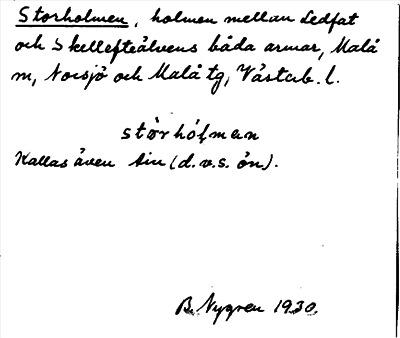 Storholmen, holmen mellan Ledfat
och Skellefteälvens båda armar, Malå
m, Norsjö och Malå tg, Västerb. l.
stórhólman
Kallas även Ain (d.v.s. ön).
B. Nygren 1930.